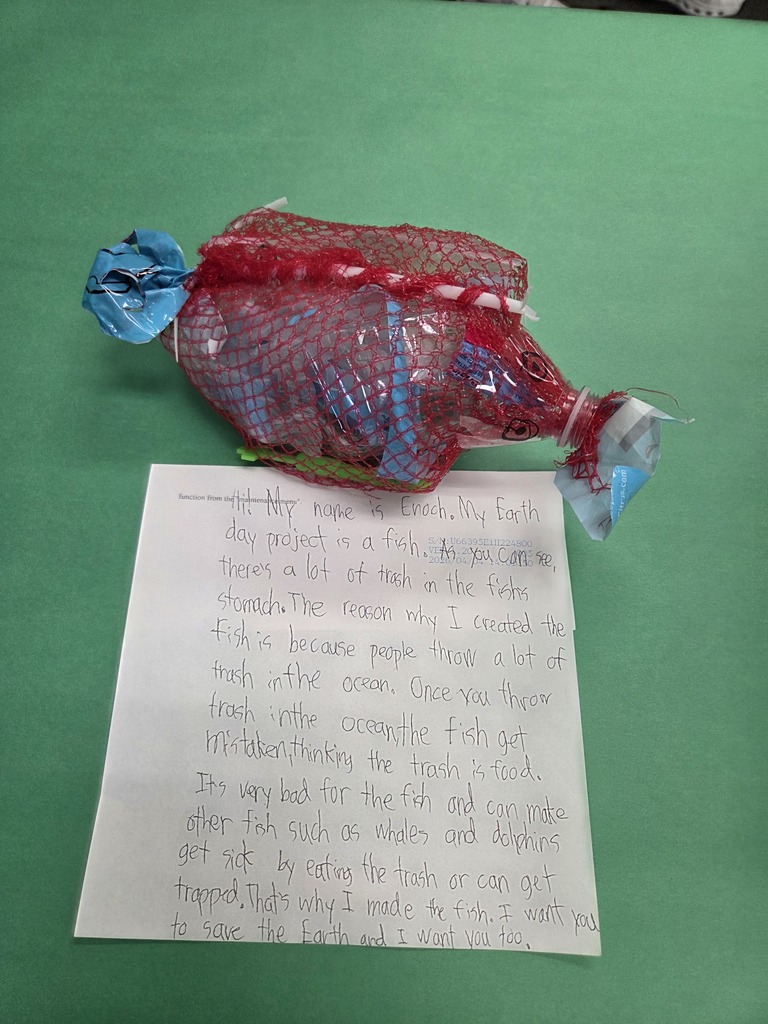 function from the "maintenance menu".
Hi! My name is Enoch. My Earth
day project is a fish. As you can see,
there's a lot of trash in the fishs
stomach. The reason why I created the
fish is because people throw a lot of
trash in the ocean. Once you throw
trash in the ocean, the fish get
mistaken, thinking the trash is food.
Its very bad for the fish and can make
other fish such as whales and dolphins
get sick by eating the trash or can get
trapped. That's why I made the fish. I want you
to save the Earth and I want you too.